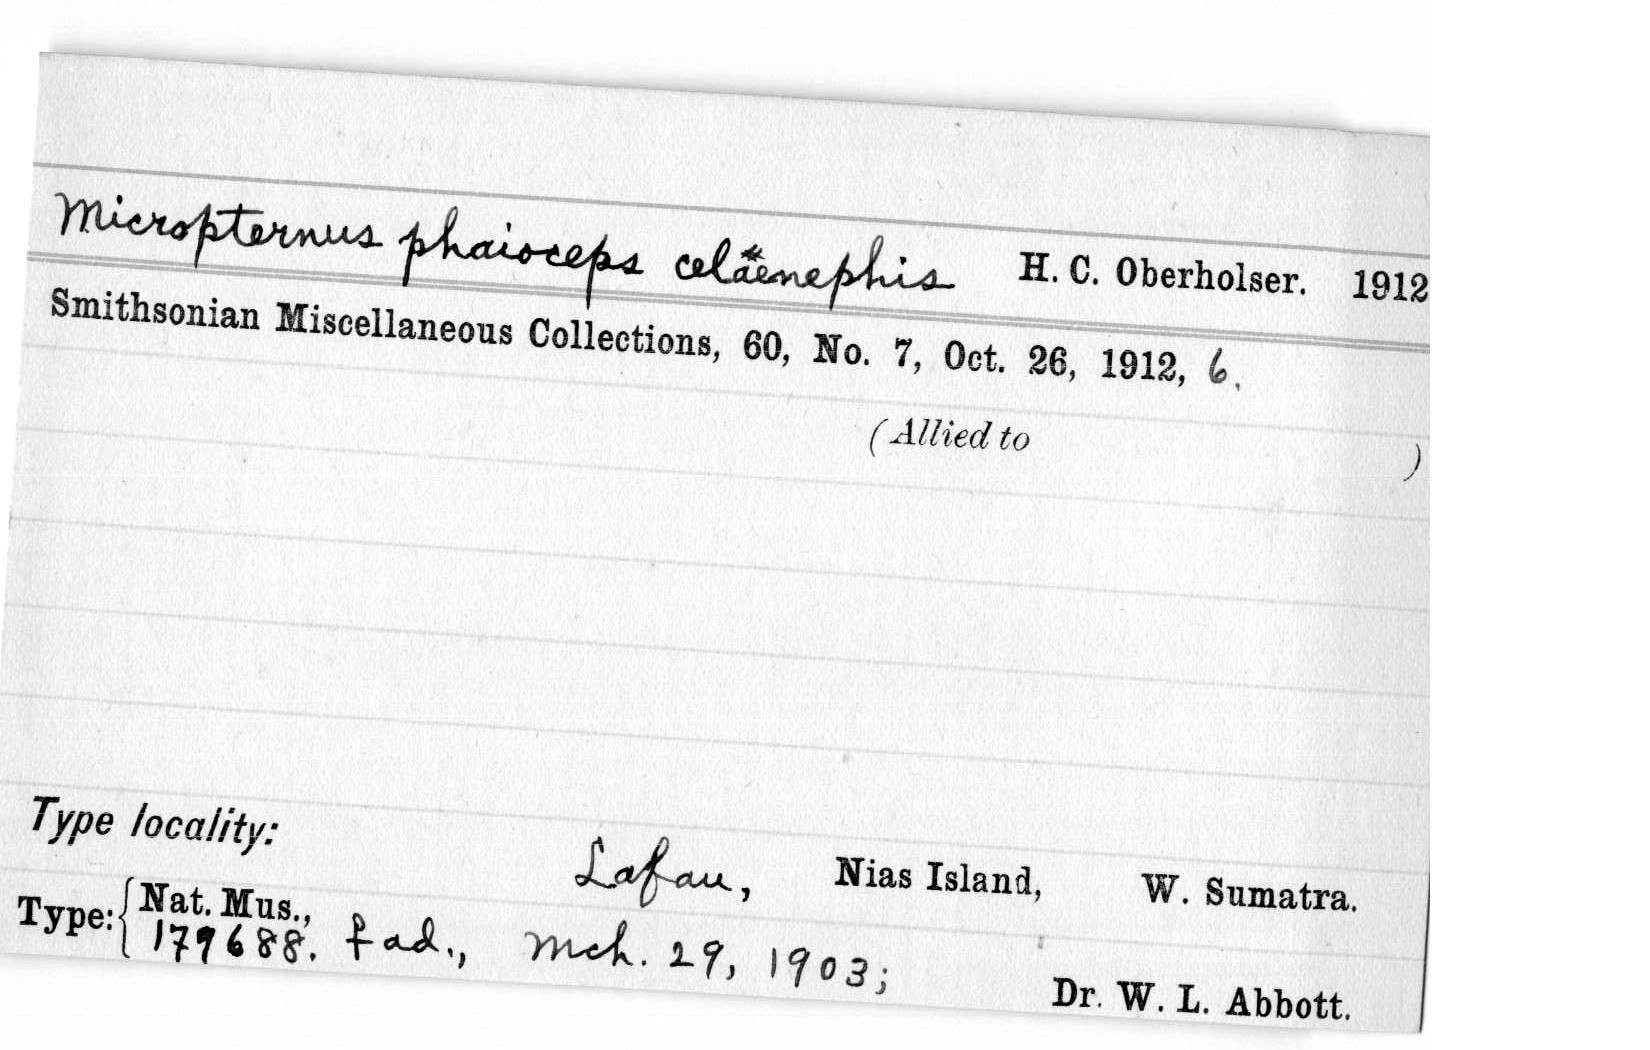 Micropternus phaioceps celaenephis H. C. Oberholser. 1912
Smithsonian Miscellaneous Collections, 60, No. 7, Oct. 26, 1912, 6.
(Allied to )
Type locality:
Lafau, Nias Island, W. Sumatra.
Type: { Nat. Mus.,
179688. f ad., Mch. 29, 1903;
Dr. W. L. Abbott.